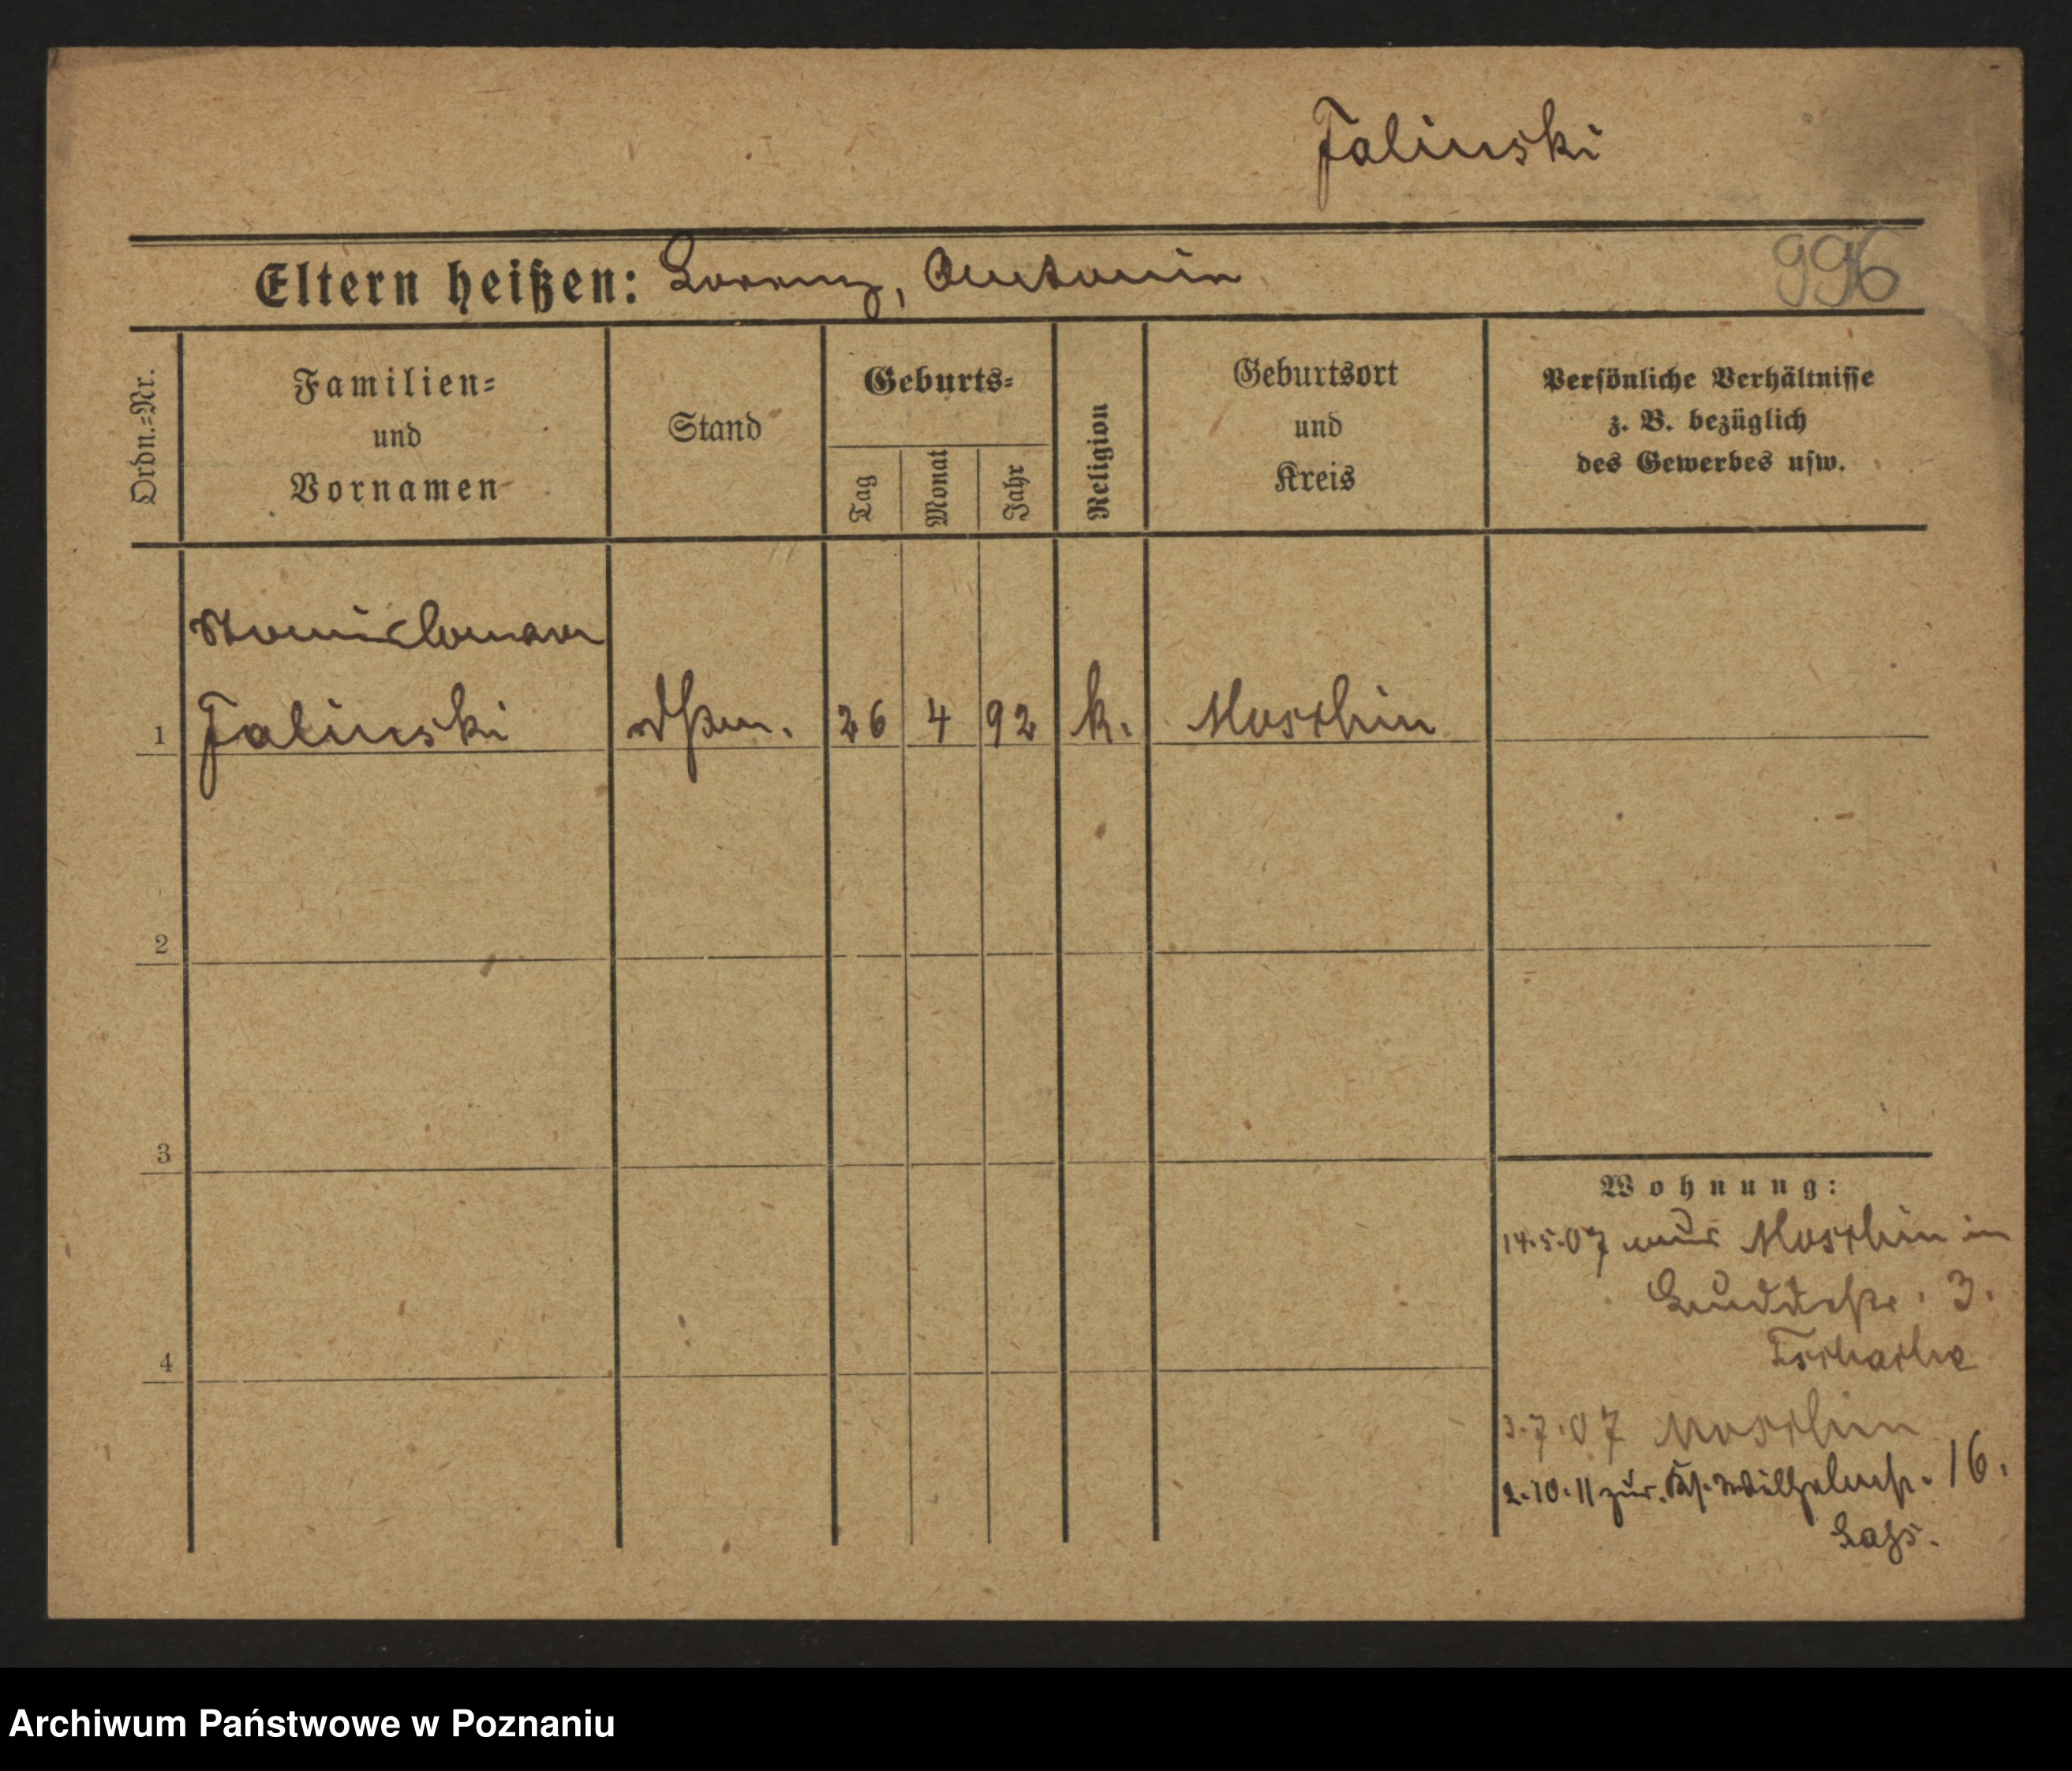 Falinski
Eltern heißen: Lorenz, Antonie
996
Ordn.=Nr.
Familien=
und
Vornamen
Stand
Geburts=
Tag
Monat
Jahr
Religion
Geburtsort
und
Kreis
Persönliche Verhältnisse
z. B. bezüglich
des Gewerbes usw.
Stanislawa
1 Falinski 26 4 92 k. Moschin
2
3
4
Wohnung:
14.5.07 aus Moschin in
3.
3.7.07 Moschin
2.10.11 zur. Wilhelmstr. 16.
Archiwum Państwowe w Poznaniu